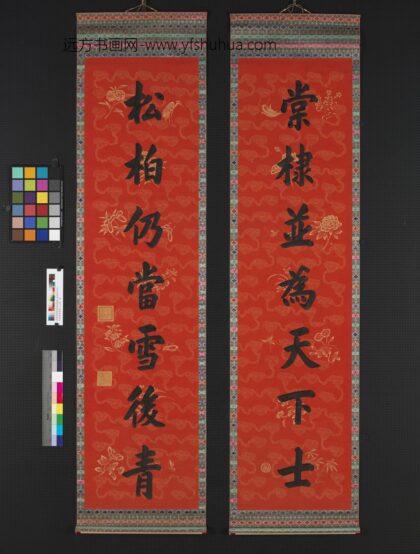 远方书画网-www.yfshuhua.com
棠棣並為天下士
松柏仍當雪後青